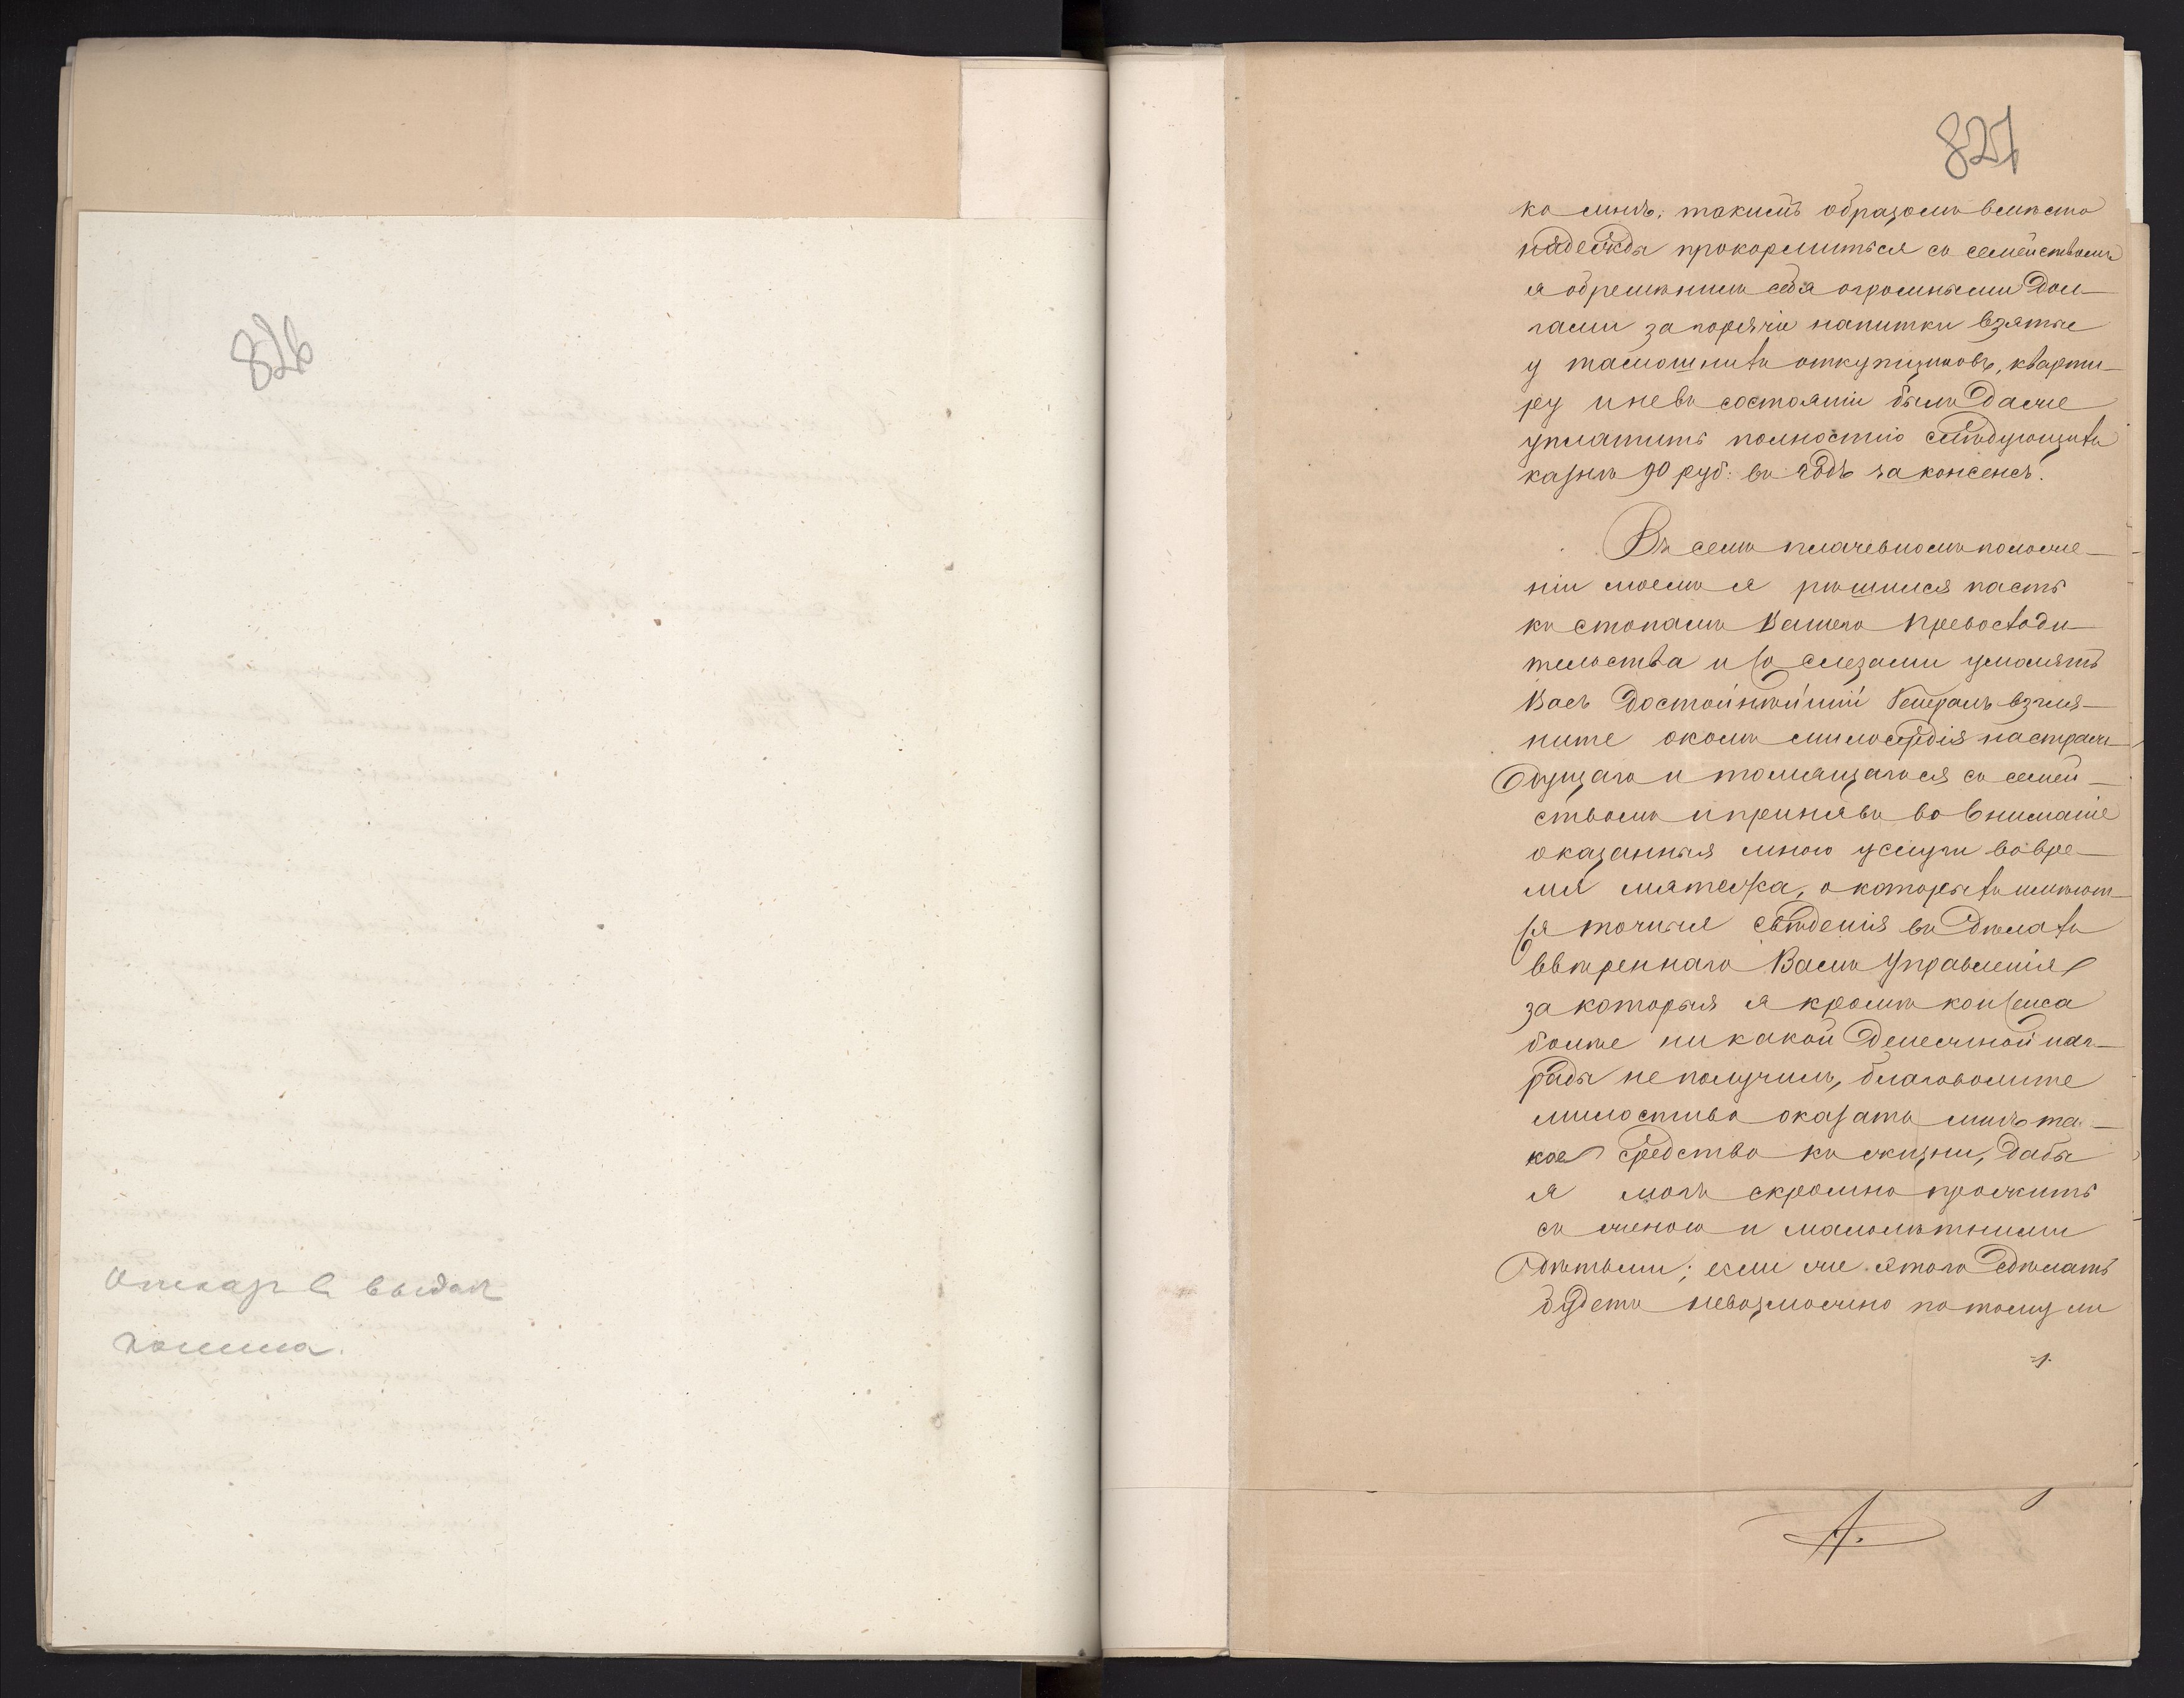 826
Отказъ в выдач
коншна.
827
ко мнѣ, такимъ образомъ вмѣсто
надежды прокормиться съ семействомъ
я обременилъ себя огромными дол-
гами за горячіе напитки взятые
у тамошнихъ откупщиковъ, кварти-
ру и невъ состояніи былъ даже
уплатить полностію слѣдующихъ
казнѣ 90 руб: въ годъ за консенсъ.
Въ семъ плачевномъ положе-
ніи моемъ я рѣшился пасть
къ стопамъ Вашего Превосходи-
тельства и со слезами умолять
Васъ Достойнѣйшій Генералъ взгля-
ните окомъ милосердія на страж-
дущаго и томящагося съ семей-
ствомъ и принявъ во вниманіе
оказанныя мною услуги во вре-
мя мятежа, о которыхъ имѣют-
ся точныя свѣденія въ дѣлахъ
ввѣреннаго Вамъ Управленія
за которыя я кромѣ консенса
болѣе никакой денежной наг-
рады не получилъ, благоволите
милостиво оказать мнѣ та-
кое средство къ жизни, дабы
я могъ скромно прожить
съ женою и малолѣтними
дѣтьми; если же этого сдѣлать
будетъ невозможно по тому ли
А.